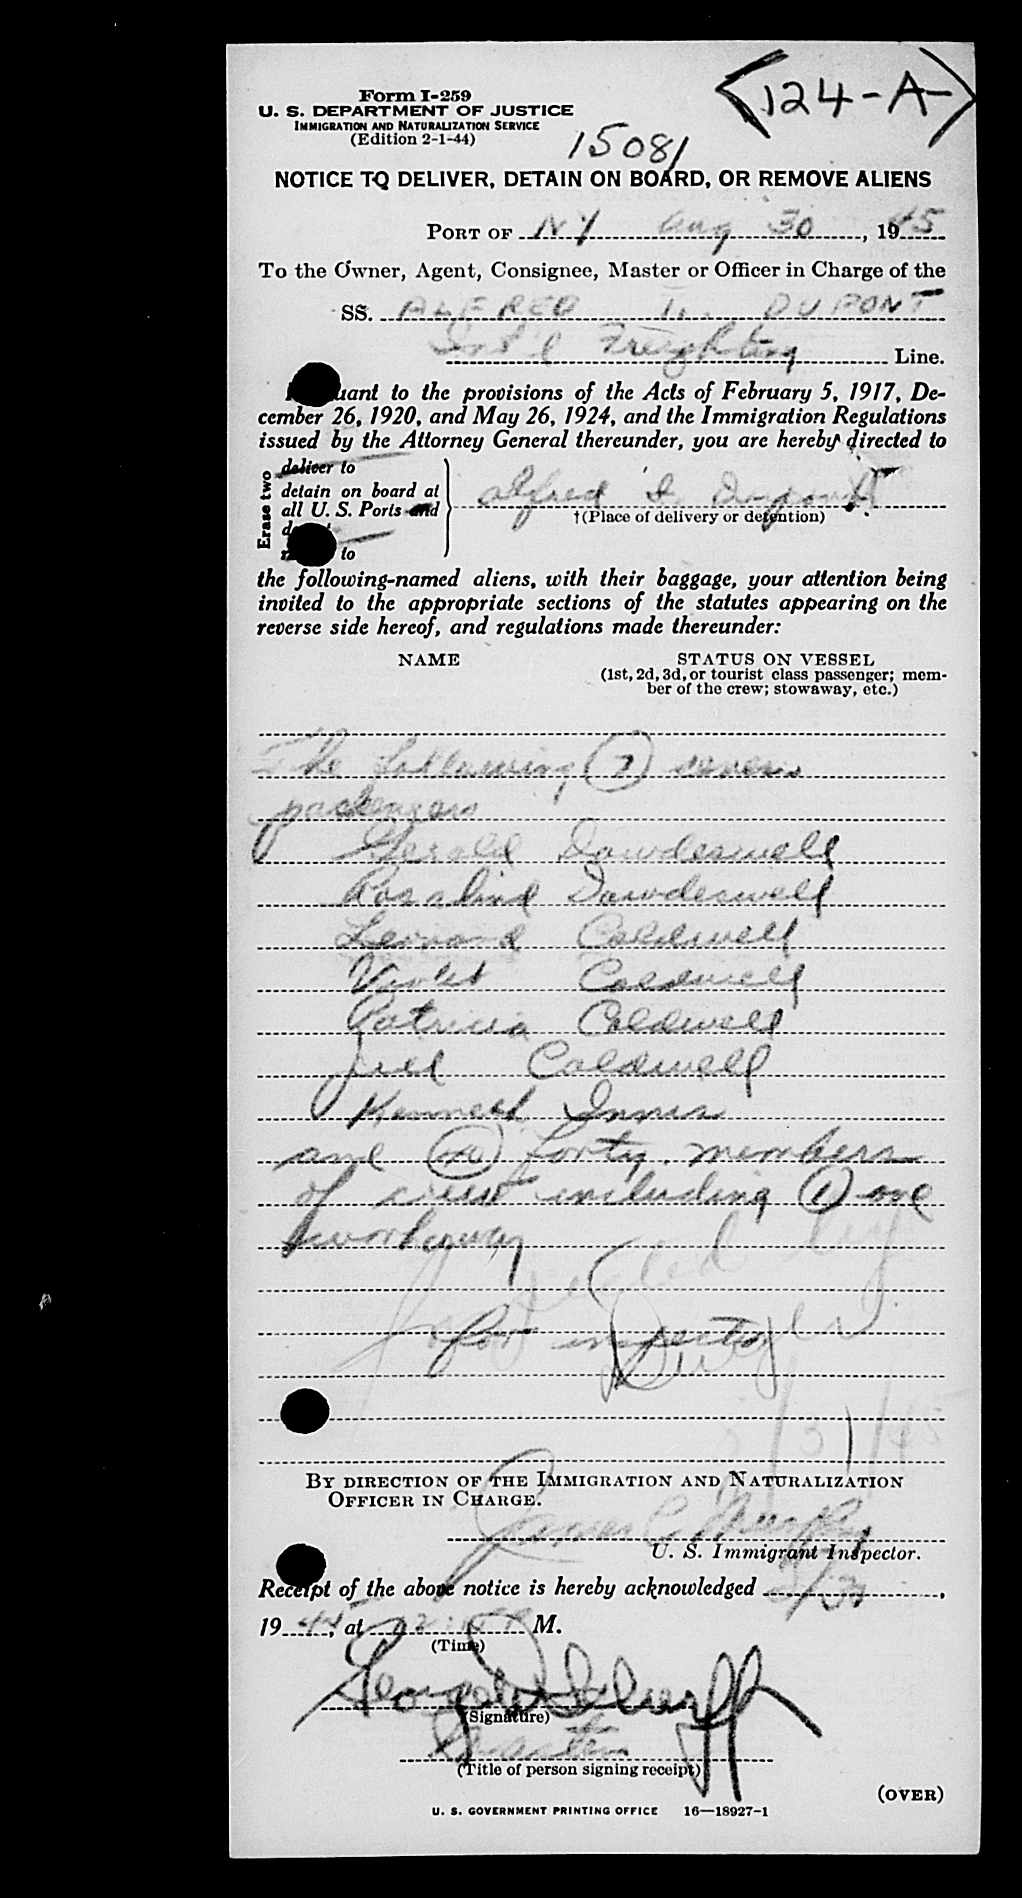 Form I-259
<124-A->
U. S. DEPARTMENT OF JUSTICE
IMMIGRATION AND NATURALIZATION SERVICE
(Edition 2-1-44)
15081
NOTICE TO DELIVER, DETAIN ON BOARD, OR REMOVE ALIENS
PORT OF NY Aug 30, 1945
To the Owner, Agent, Consignee, Master or Officer in Charge of the
SS. ALFRED I. DUPONT
Int'l Freighting Line.
uant to the provisions of the Acts of February 5, 1917, De-
cember 26, 1920, and May 26, 1924, and the Immigration Regulations
issued by the Attorney General thereunder, you are hereby directed to
Erase two
deliver to
detain on board at
all U. S. Ports and
Alfred I. Dupont
†(Place of delivery or detention)
to
the following-named aliens, with their baggage, your attention being
invited to the appropriate sections of the statutes appearing on the
reverse side hereof, and regulations made thereunder:
NAME STATUS ON VESSEL
(1st, 2d, 3d, or tourist class passenger; mem-
ber of the crew; stowaway, etc.)
The following (7) seven
passengers
Gerald Dowdeswell
Rosalind Dowdeswell
Leonard Caldwell
Violet Caldwell
Patricia Caldwell
Jill Caldwell
Kenneth Innis
and (40) forty members
of crew including (1) one
workaway
for inspection
BY DIRECTION OF THE IMMIGRATION AND NATURALIZATION
OFFICER IN CHARGE.
James C. Murphy
U. S. Immigrant Inspector.
Receipt of the above notice is hereby acknowledged 8/30,
19 44, at M.
(Time)
(Signature)
(Title of person signing receipt)
(OVER)
U. S. GOVERNMENT PRINTING OFFICE 16—18927-1